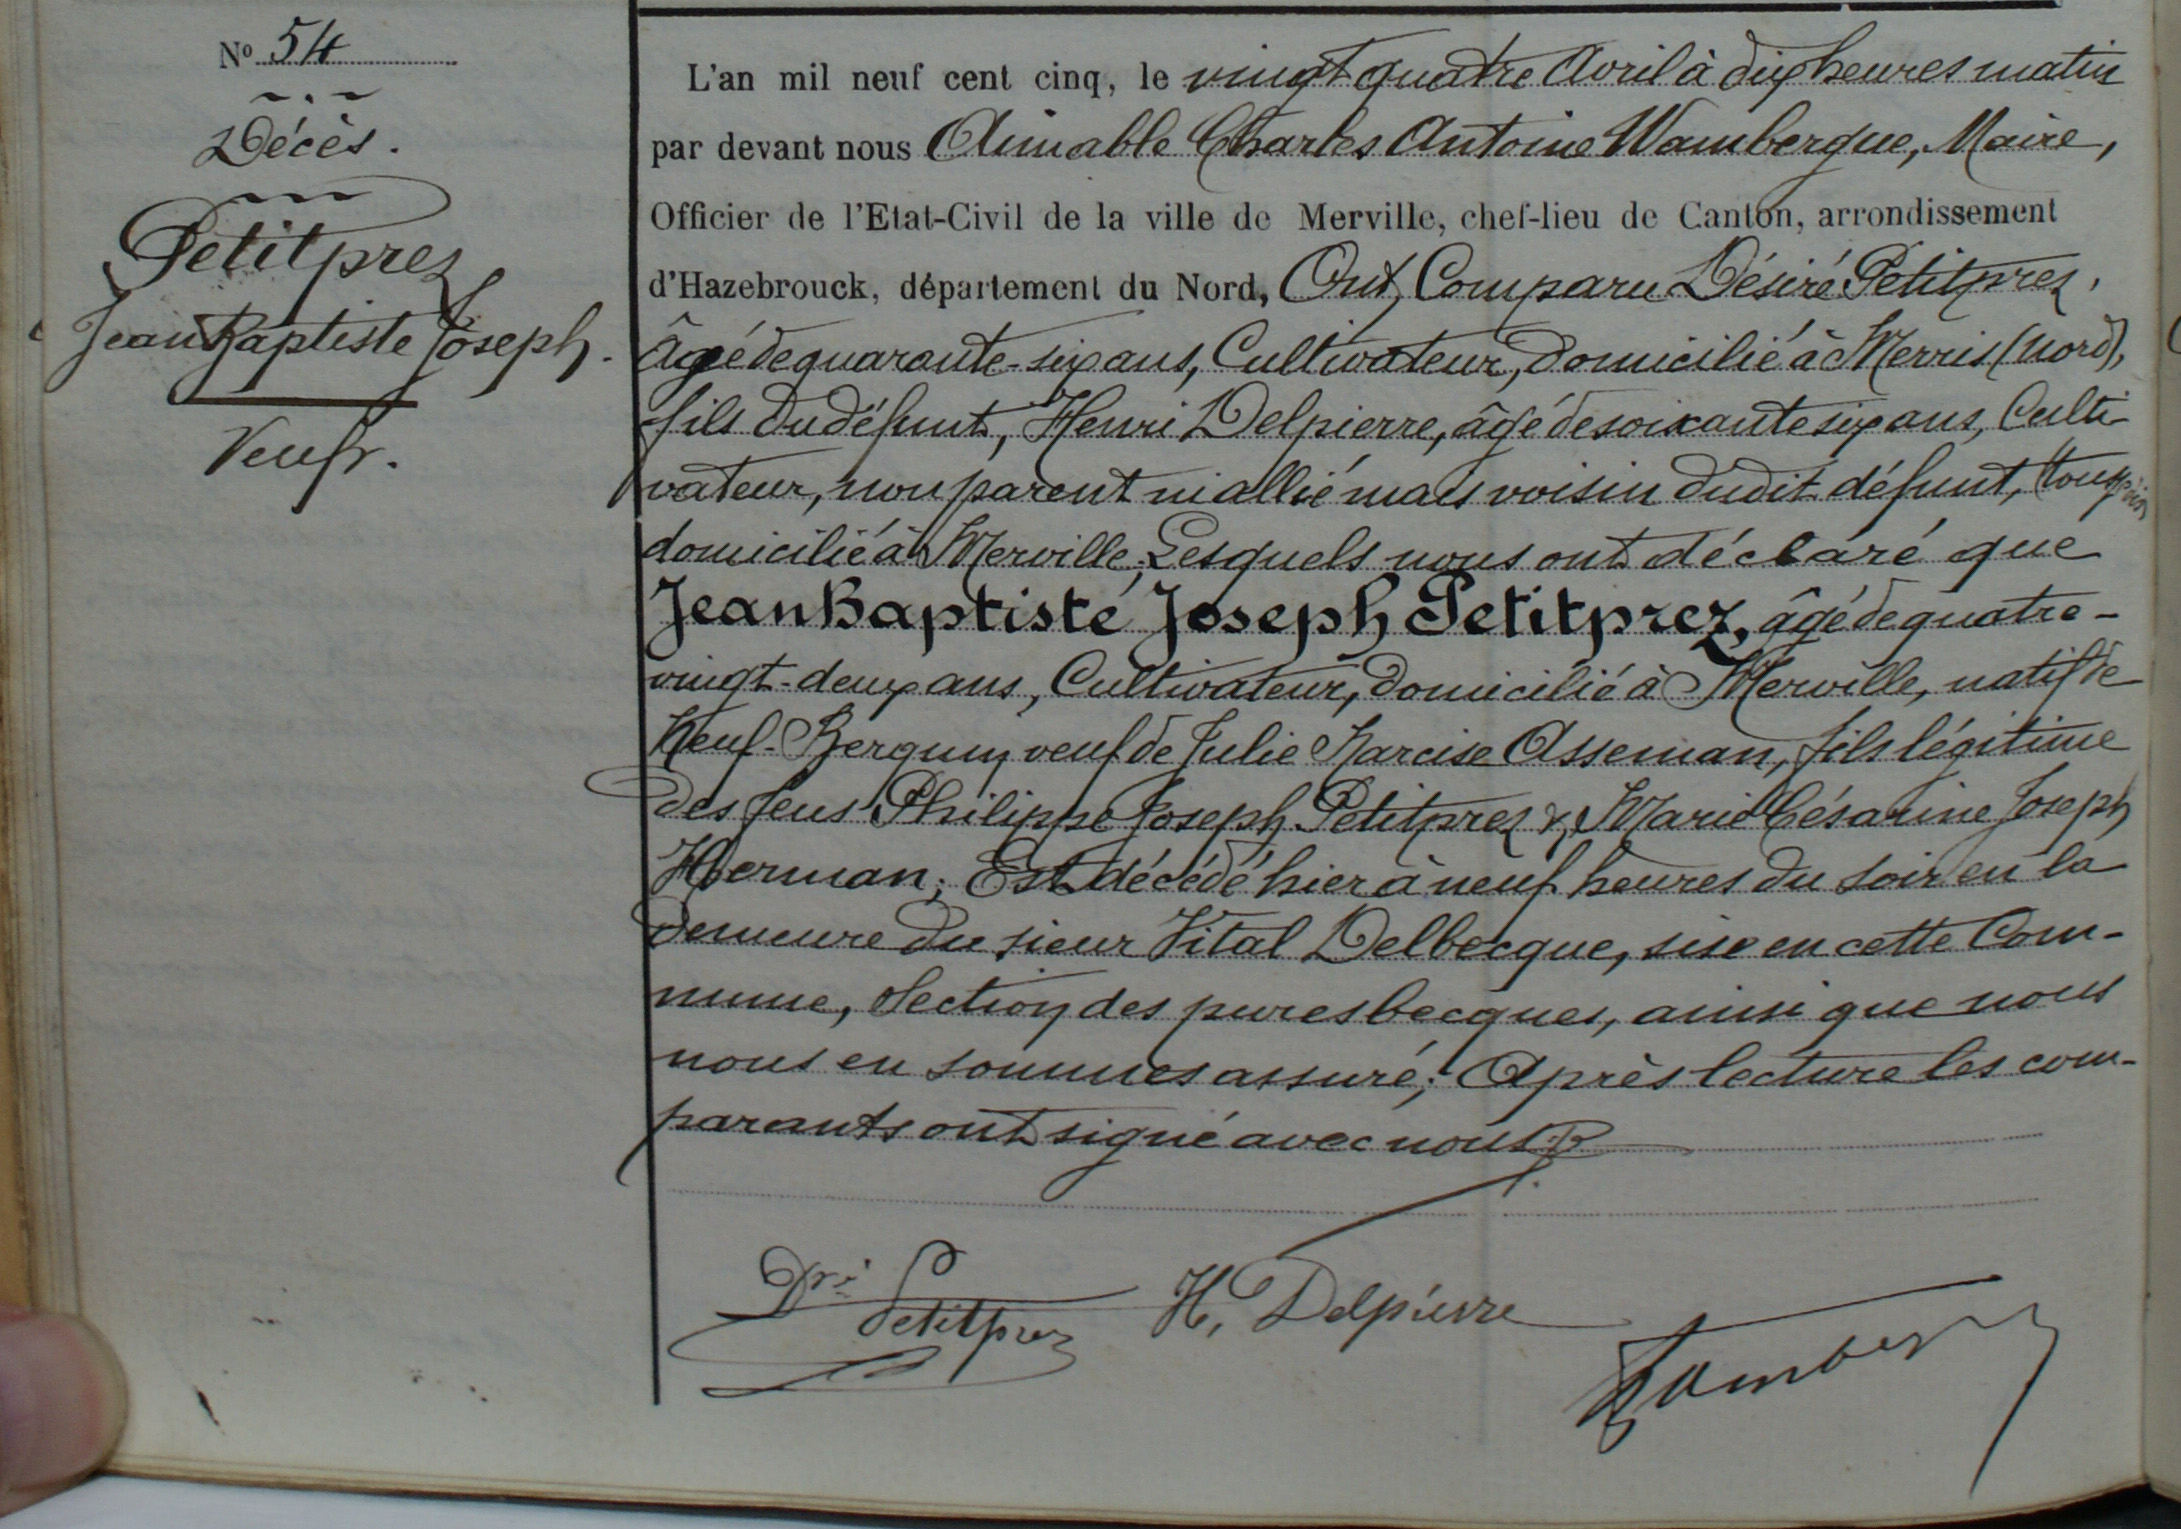 N° 54
Décès.
Petitprez
Jean Baptiste Joseph.
Veuf.
L'an mil neuf cent cinq, le vingt quatre Avril à dix heures matin
par devant nous Aimable Charles Antoine Wambergue, Maire,
Officier de l'Etat-Civil de la ville de Merville, chef-lieu de Canton, arrondissement
d'Hazebrouck, département du Nord, Ont Comparu Désiré Petitprez,
âgé de quarante-six ans, Cultivateur, domicilié à Merris (Nord),
fils du défunt, Henri Delpierre, âgé de soixante six ans, Culti-
vateur, non parent ni allié mais voisin dudit défunt,
domicilié à Merville; Lesquels nous ont déclaré que
Jean Baptiste Joseph Petitprez, âgé de quatre-
vingt-deux ans, Cultivateur, domicilié à Merville, natif de
Neuf-Berquin, veuf de Julie Narcise Asseman, fils légitime
des feus Philippe Joseph Petitprez & Marie Césarine Joseph
Herman; Est décédé hier à neuf heures du soir en la
demeure du sieur Vital Delbecque, sise en cette Com-
mune, Section des puresbecques, ainsi que nous
nous en sommes assuré; Après lecture les com-
parants ont signé avec nous.
Dré Petitprez H, Delpierre